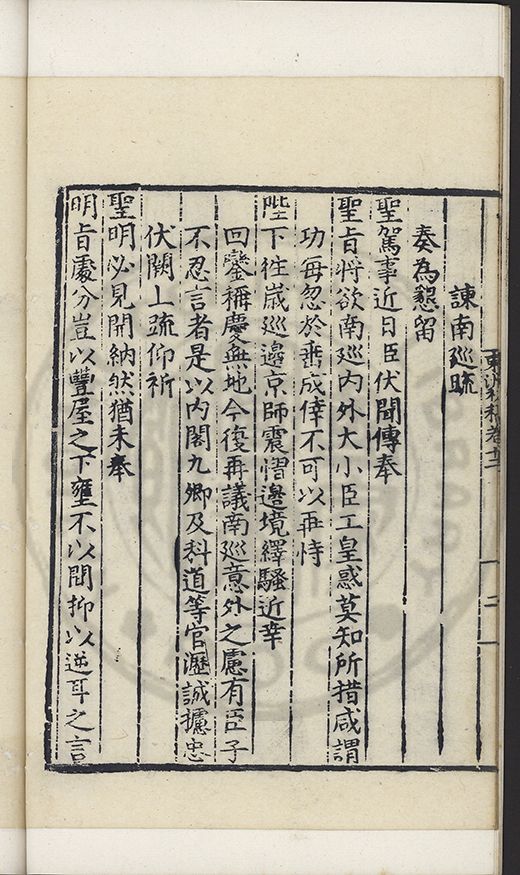 諫南巡疏
奏為懇留
聖駕事近日臣伏聞傳奉
聖旨將欲南巡内外大小臣工皇惑莫知所措咸謂
功每忽於垂成倖不可以再恃
陛下徃歲巡邊京師震慴邊境繹騷近幸
回鑾稱慶無地今復再議南巡意外之慮有臣子
不忍言者是以内閣九卿及科道等官瀝誠攄忠
伏闕上疏仰祈
聖明必見開納然猶未奉
明旨處分豈以豐屋之下壅不以聞抑以逆耳之言